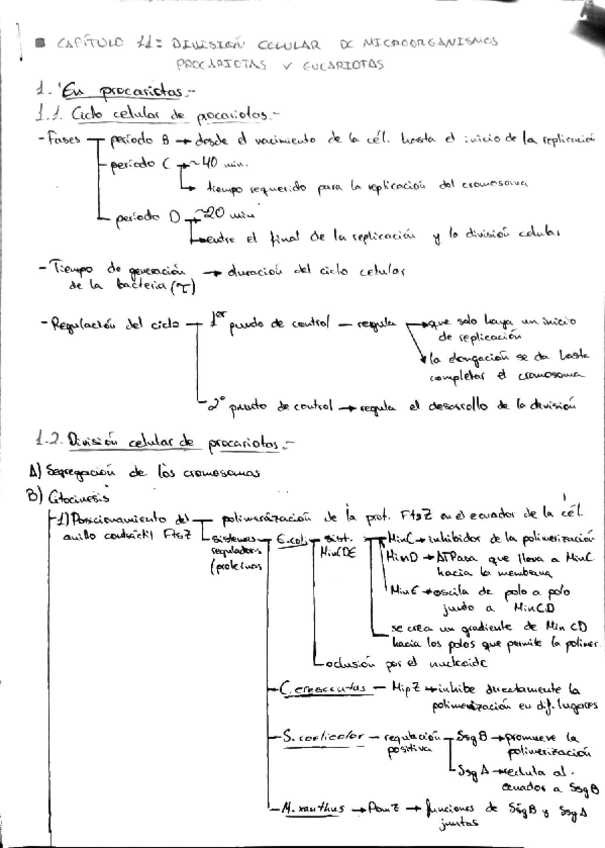 CAPÍTULO 11: DIVISIÓN CELULAR DE MICROORGANISMOS
PROCARIOTAS Y EUCARIOTAS
1. En procariotas.-
1.1. Ciclo celular de procariotas.-
- Fases período B → desde el nacimiento de la cél. hasta el inicio de la replicación
período C → ~40 min.
tiempo requerido para la replicación del cromosoma
período D ~20 min
entre el final de la replicación y la división celular
- Tiempo de generación → duración del ciclo celular
de la bacteria (τ)
- Regulación del ciclo 1er punto de control - regula → que solo haya un inicio
de replicación
la elongación se da hasta
completar el cromosoma
2º punto de control → regula el desarrollo de la división
1.2. División celular de procariotas.-
A) Segregación de los cromosomas
B) Citocinesis
1) Posicionamiento del polimerización de la prot. FtsZ en el ecuador de la cél.
anillo contráctil FtsZ sistemas E.coli sist. MinC → inhibidor de la polimerización
reguladores MinCDE MinD → ATPasa que lleva a MinC
(proteínas hacia la membrana
MinE → oscila de polo a polo
junto a MinCD
se crea un gradiente de Min CD
hacia los polos que permite la polimer.
oclusión por el nucleoide
C. crescentus - MipZ → inhibe directamente la
polimerización en dif. lugares
S. coelicolor - regulación SsgB → promueve la
positiva polimerización
SsgA → recluta al
ecuador a SsgB
M. xanthus → PomZ → funciones de SsgB y SsgA
juntas